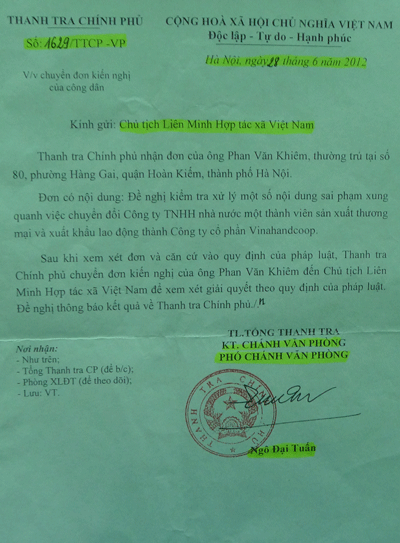 THANH TRA CHÍNH PHỦ
Số: 1629/TTCP -VP
V/v chuyển đơn kiến nghị
của công dân
CỘNG HOÀ XÃ HỘI CHỦ NGHĨA VIỆT NAM
Độc lập - Tự do - Hạnh phúc
Hà Nội, ngày 28 tháng 6 năm 2012
Kính gửi: Chủ tịch Liên Minh Hợp tác xã Việt Nam
Thanh tra Chính phủ nhận đơn của ông Phan Văn Khiêm, thường trú tại số
80, phường Hàng Gai, quận Hoàn Kiếm, thành phố Hà Nội.
Đơn có nội dung: Đề nghị kiểm tra xử lý một số nội dung sai phạm xung
quanh việc chuyển đổi Công ty TNHH nhà nước một thành viên sản xuất thương
mại và xuất khẩu lao động thành Công ty cổ phần Vinahandcoop.
Sau khi xem xét đơn và căn cứ vào quy định của pháp luật, Thanh tra
Chính phủ chuyển đơn kiến nghị của ông Phan Văn Khiêm đến Chủ tịch Liên
Minh Hợp tác xã Việt Nam để xem xét giải quyết theo quy định của pháp luật.
Đề nghị thông báo kết quả về Thanh tra Chính phủ./.
Nơi nhận:
- Như trên;
- Tổng Thanh tra CP (để b/c);
- Phòng XLĐT (để theo dõi);
- Lưu: VT.
TL.TỔNG THANH TRA
KT. CHÁNH VĂN PHÒNG
PHÓ CHÁNH VĂN PHÒNG
THANH TRA CHÍNH PHỦ
Ngô Đại Tuấn